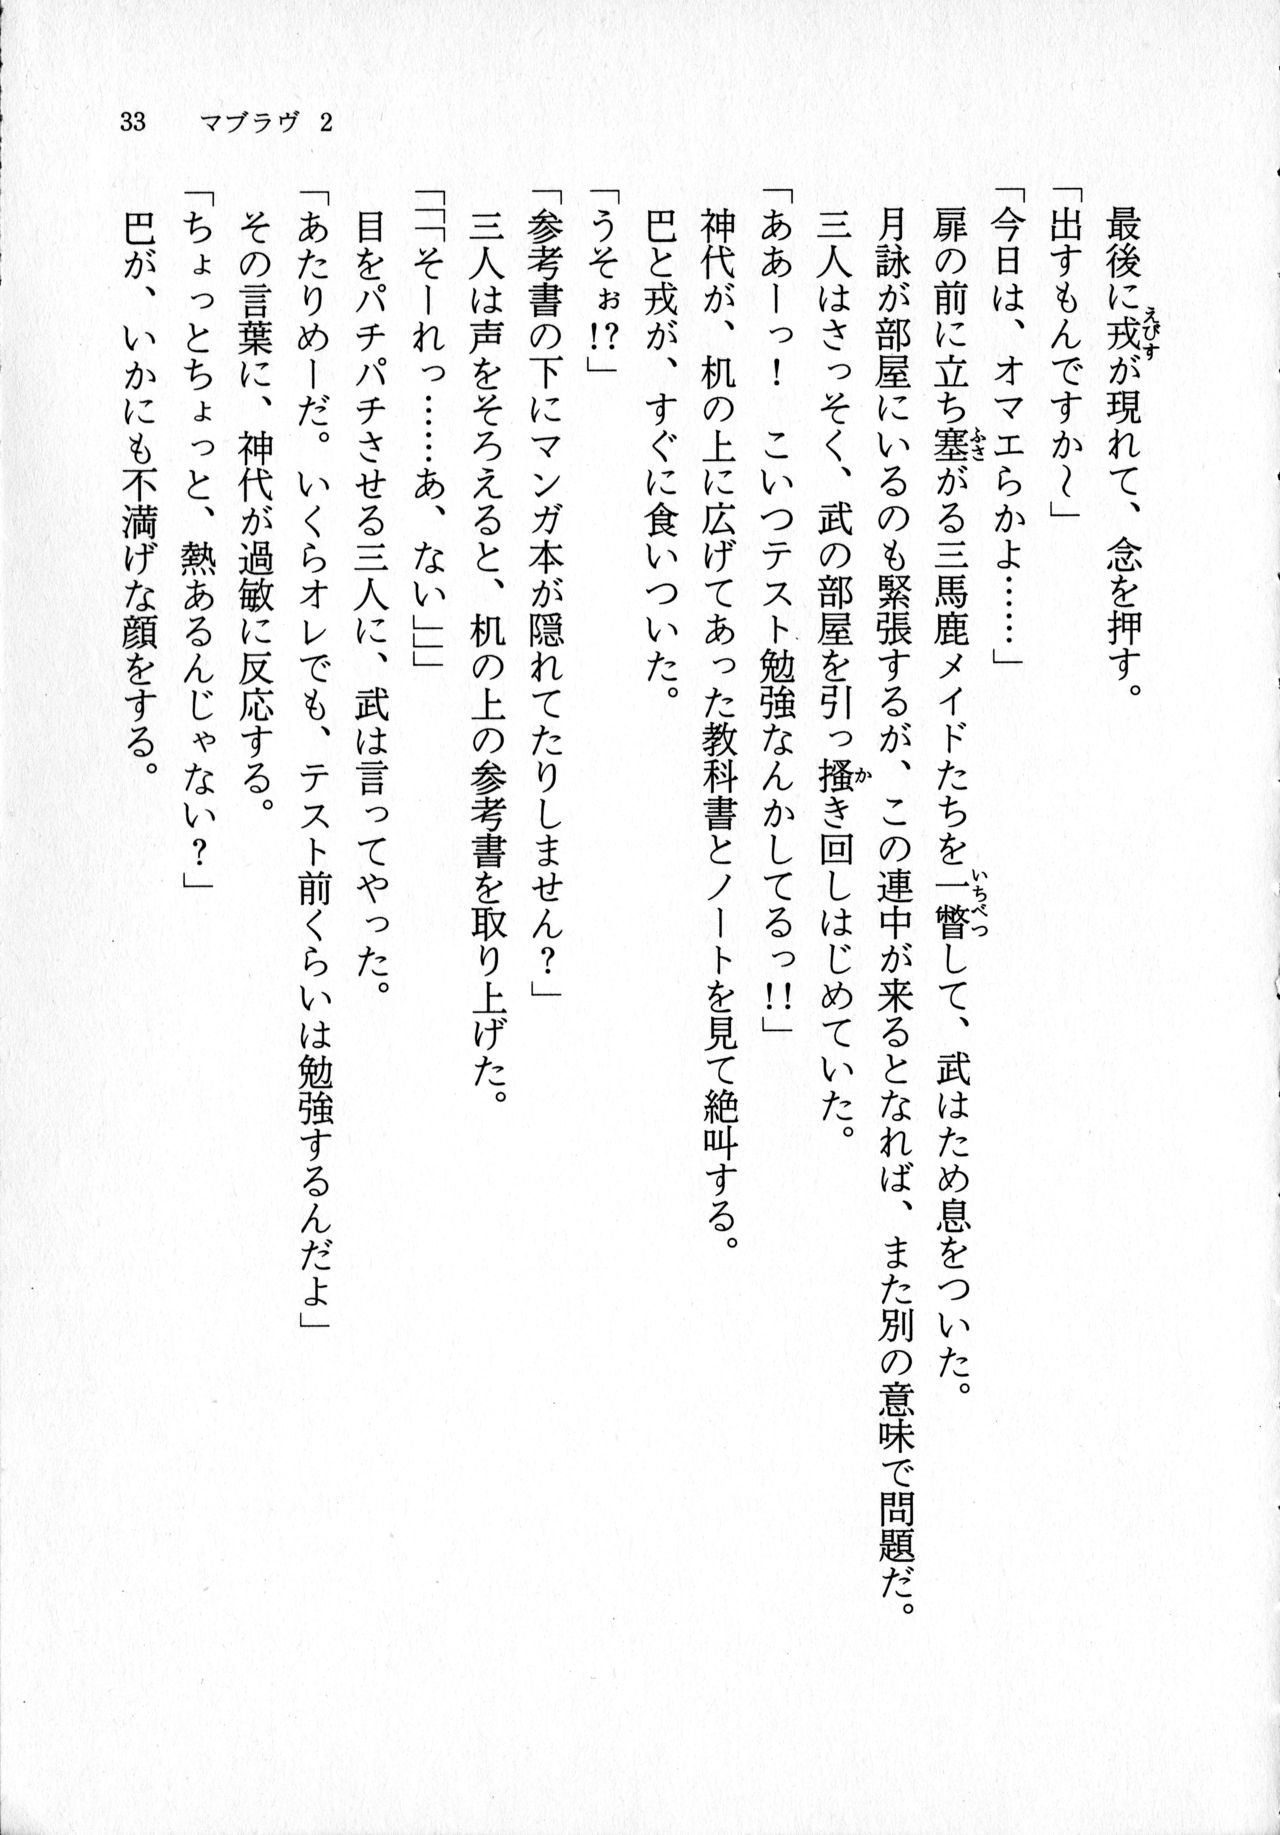 33 マブラヴ 2
最後に戎が現れて、念を押す。
「出すもんですか～」
「今日は、オマエらかよ……」
扉の前に立ち塞がる三馬鹿メイドたちを一瞥して、武はため息をついた。
月詠が部屋にいるのも緊張するが、この連中が来るとなれば、また別の意味で問題だ。
三人はさっそく、武の部屋を引っ掻き回しはじめていた。
「ああーっ！　こいつテスト勉強なんかしてるっ!!」
神代が、机の上に広げてあった教科書とノートを見て絶叫する。
巴と戎が、すぐに食いついた。
「うそぉ!?」
「参考書の下にマンガ本が隠れてたりしません？」
三人は声をそろえると、机の上の参考書を取り上げた。
「「「そーれっ……あ、ない」」」
目をパチパチさせる三人に、武は言ってやった。
「あたりめーだ。いくらオレでも、テスト前くらいは勉強するんだよ」
その言葉に、神代が過敏に反応する。
「ちょっとちょっと、熱あるんじゃない？」
巴が、いかにも不満げな顔をする。